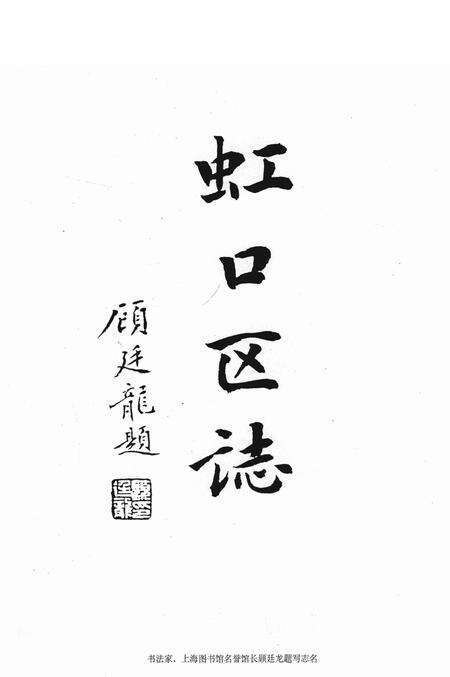 虹口区誌
顾廷龍題
书法家、上海图书馆名誉馆长顾廷龙题写志名